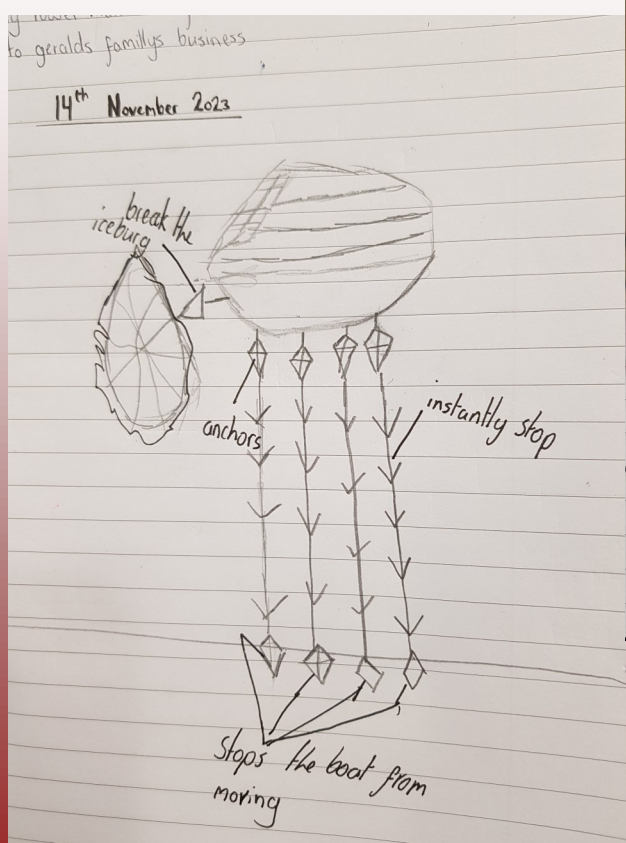 to geralds famillys business
14th November 2023
break the
iceburg
anchors
instantly stop
Stops the boat from
moving